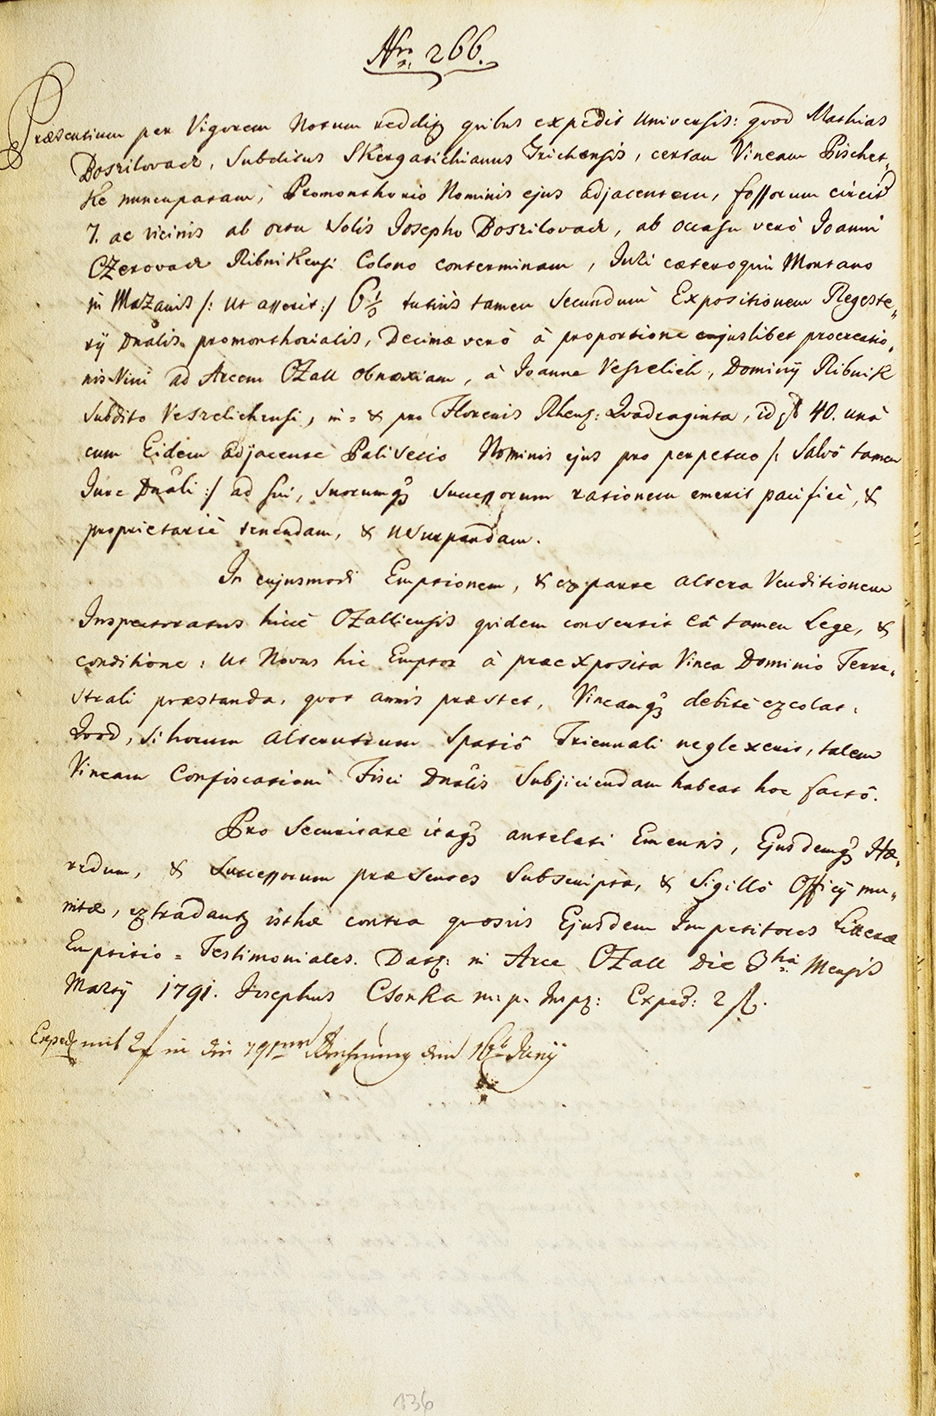 Nro. 266.
Præsentium per Vigorem Notum redditq quibus expedit Universis: quod Mathias
Doszilovacz, Subditus Skergatichianus Grichensis, certam Vineam Pischet,,
ke nuncupatam, Promonthorio Nominis ejus adjacentem, fossorum circit
7. ac vicinis ab ortu Solis Josepho Doszilovacz, ab occasu verò Joanni
Czerovacz Ribnikensi Colono conterminam, Juri cæteroquin Montano
in Mazanis /: ut asserit :/ 6½ tutius tamen Secundum Expositionem Regeste,,
rÿ Dnalis promonthorialis, Decimæ verò à proportione cujuslibet procreatio,,
nis Vini ad Arcem Ozall obnoxiam, à Joanne Veszelich, Dominÿ Ribnik
Subdito Veszelichensi, in = & pro Florenis Rhens: Quadraginta, id est 40. unà
cum Eidem adjacente Palisecio Nominis ejus pro perpetuo /: Salvô tamen
Jure Dnali :/ ad sui, suorumq Successorum rationem emerit pacificè, &
proprietariè tenendam, & usurpandam.
In cujusmodi Emptionem, & ex parte altera Venditionem
Inspectoratus hicce Ozalliensis quidem consensit eâ tamen Lege, &
conditione: ut Novus hic Emptor à præexposita Vinea Dominio Terre,,
strali præstanda, quot annis præstet, Vineamq debitè excolat:
Quod, si horum alterutrum Spatiô Triennali neglexerit, talem
Vineam Confiscationi Fisci Dnalis Subjiciendam habeat hoc factô.
Pro Securitate itaq antelati Emensis, Ejusdemq Hæ,,
redum, & Successorum præsentes Subscripta, & Sigillô Officÿ mu,,
nitæ, extradantq isthæ contra quosvis Ejusdem Impetitores Litteræ
Emptitio = Testimoniales. Datq: in Arce Ozall Die 8va Mensis
Martÿ 1791. Josephus Csonka m: p: Inspq: Exped: 2 f.
Exped mit 2 f in die 791 Rechnung den 16 Junÿ
336